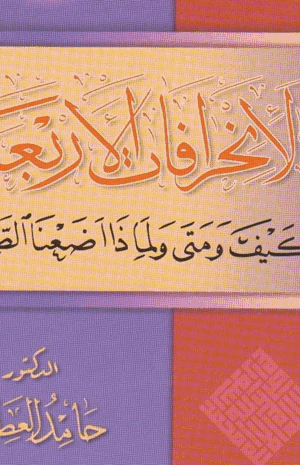 الانحرافات الأربعة
كيف ومتى ولماذا أضعنا
الدكتور
حامد